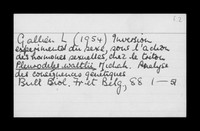 Gallien L (1954) Inversion
expérimental du sexe, sous l'action
des hormones sexuelles, chez le triton
Pleurodeles waltlii Michah. Analyse
des conséquences génétiques
Bull Biol. Fr et Belg, 88 1—